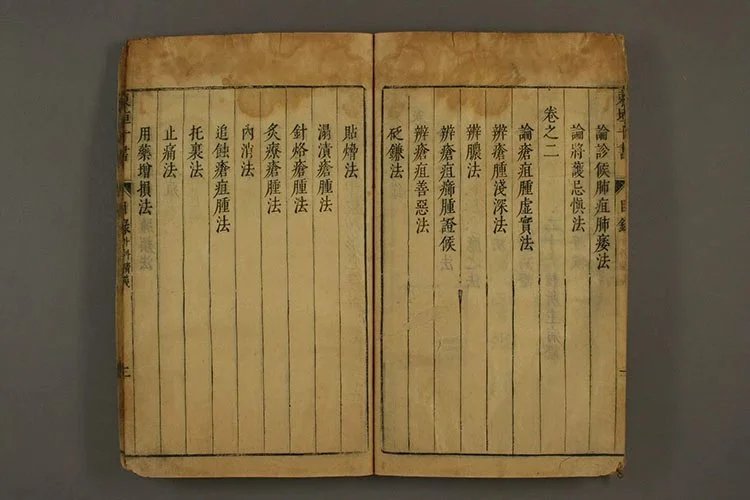 東垣十書 目錄
論診候肺疽肺痿法
論將護忌慎法
卷之二
論瘡疽腫虛實法
辨瘡腫淺深法
辨膿法
辨瘡疽癤腫證候
辨瘡疽善惡法
砭鎌法
貼熁法
溻漬瘡腫法
針烙瘡腫法
灸療瘡腫法
內消法
追蝕瘡疽腫法
托裏法
止痛法
用藥增損法
東垣十書 目錄 外科精義 二